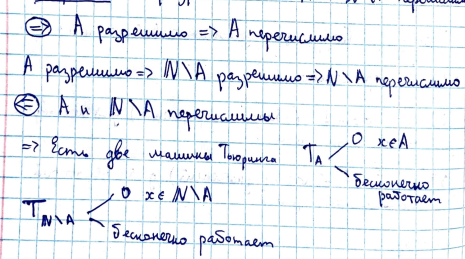 ⇒ А разрешимо => А перечислимо
А разрешимо => ℕ\А разрешимо => ℕ\А перечислимо
⇐ А и ℕ\А перечислимы
=> Есть две машины Тьюринга T_A 0 x∈A
бесконечно работает
T_ℕ\A 0 x∈ℕ\A
бесконечно работает